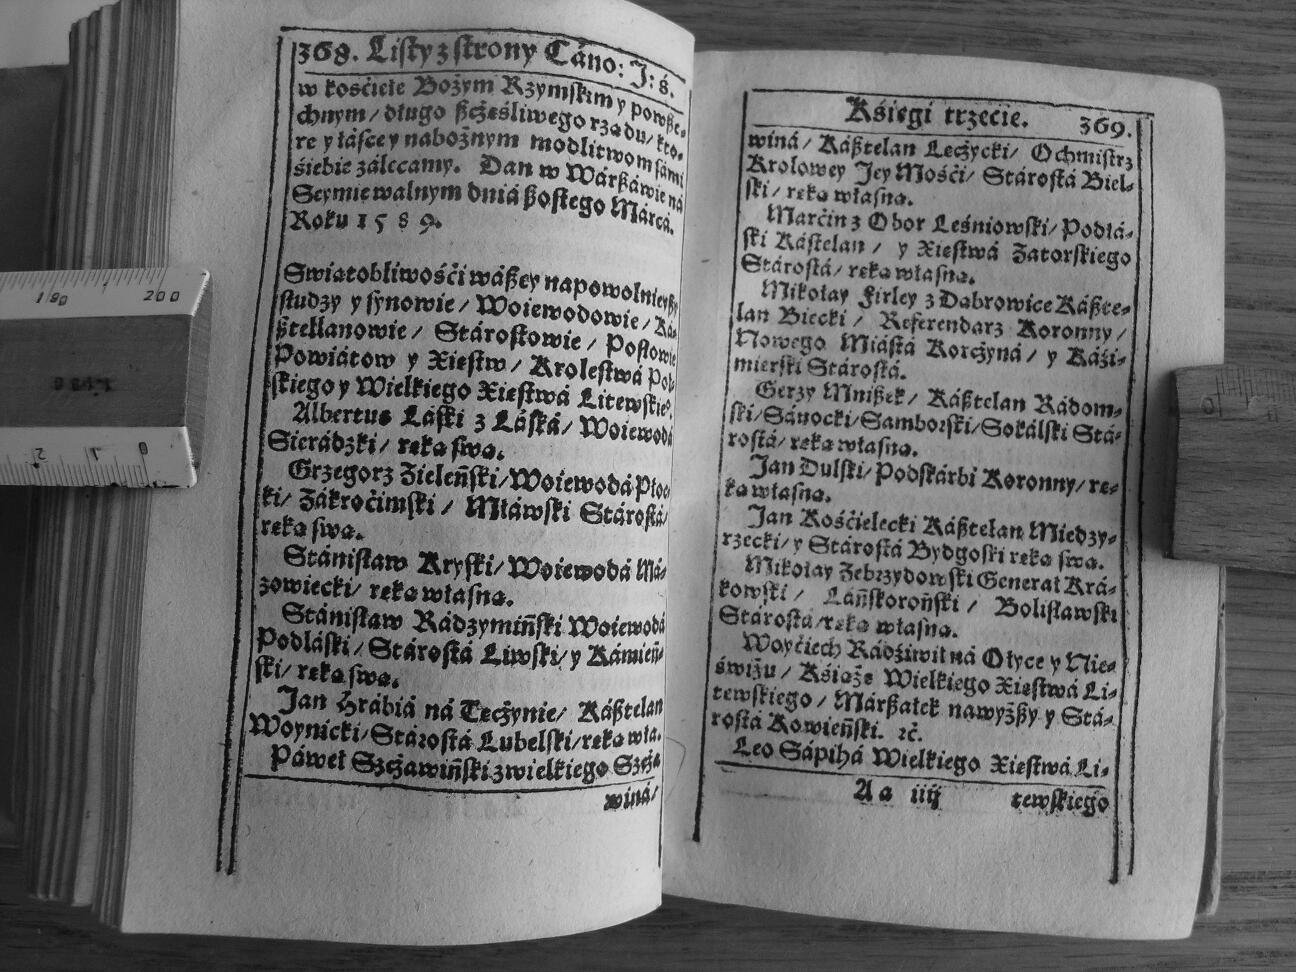 368. Listy z strony Cáno: J: ś.
w kośćiele Bożym Rzymskim y powsze-
chnym / długo sczęśliwego rządu / kto-
re y łásce y nabożnym modlitwom sámi
śiebie zálecamy. Dan w Wárszáwie ná
Seymie walnym dniá szostego Márcá.
Roku 1589.
Swiątobliwośći wászey napowolnieyszy
studzy y synowie / Woiewodowie / Ká-
sztellanowie / Stárostowie / Posłowie
Powiátow y Xiestw / Krolestwá Pol-
skiego y Wielkiego Xiestwá Litewskieº.
Albertus Láski z Láská / Woiewodá
Sierádzki / ręką swą.
Grzegorz Zieleński / Woiewodá Płoc-
ki / Zákroćimski / Młáwski Stárostá /
ręką swą.
Stánisław Kryski / Woiewodá Má-
zowiecki / ręką własną.
Stánisław Rádzymiński Woiewodá
Podláski / Stárostá Liwski / y Kámień-
ski / ręką swą.
Jan Hrábiá ná Tęczynie / Kásztelan
Woynicki / Stárostá Lubelski / ręką wła.
Páweł Szczáwiński z wielkiego Szczá-
winá /
190 200
0 1 2
Kśięgi trzećie. 369.
winá / Kásztelan Łęczycki / Ochmistrz
Krolowey Jey Mośći / Stárostá Biel-
ski / ręką własną.
Marćin z Obor Leśniowski / Podlá-
ski Kásztelan / y Xiestwá Zatorskiego
Stárostá / ręką własną.
Mikołay Firley z Dąbrowice Kászte-
lan Biecki / Referendarz Koronny /
Nowego Miástá Korczyná / y Káźi-
mierski Stárostá.
Gerzy Mniszek / Kásztelan Rádom-
ski / Sánocki / Samborski / Sokálski Stá-
rostá / ręką własną.
Jan Dulski / Podskárbi Koronny / rę-
ką własną.
Jan Kośćielecki Kásztelan Miedzy-
rzecki / y Stárostá Bydgoski ręką swą.
Mikołay Zebrzydowski Generał Krá-
kowski / Láńskoroński / Bolisławski
Stárostá / ręką własną.
Woyćiech Rádźiwił ná Ołyce y Nie-
świżu / Kśiążę Wielkiego Xiestwá Li-
tewskiego / Márszałek nawyższy y Stá-
rostá Kowieński. ꝛč.
Leo Sápihá Wielkiego Xiestwá Li-
Aa iiij tewskiego